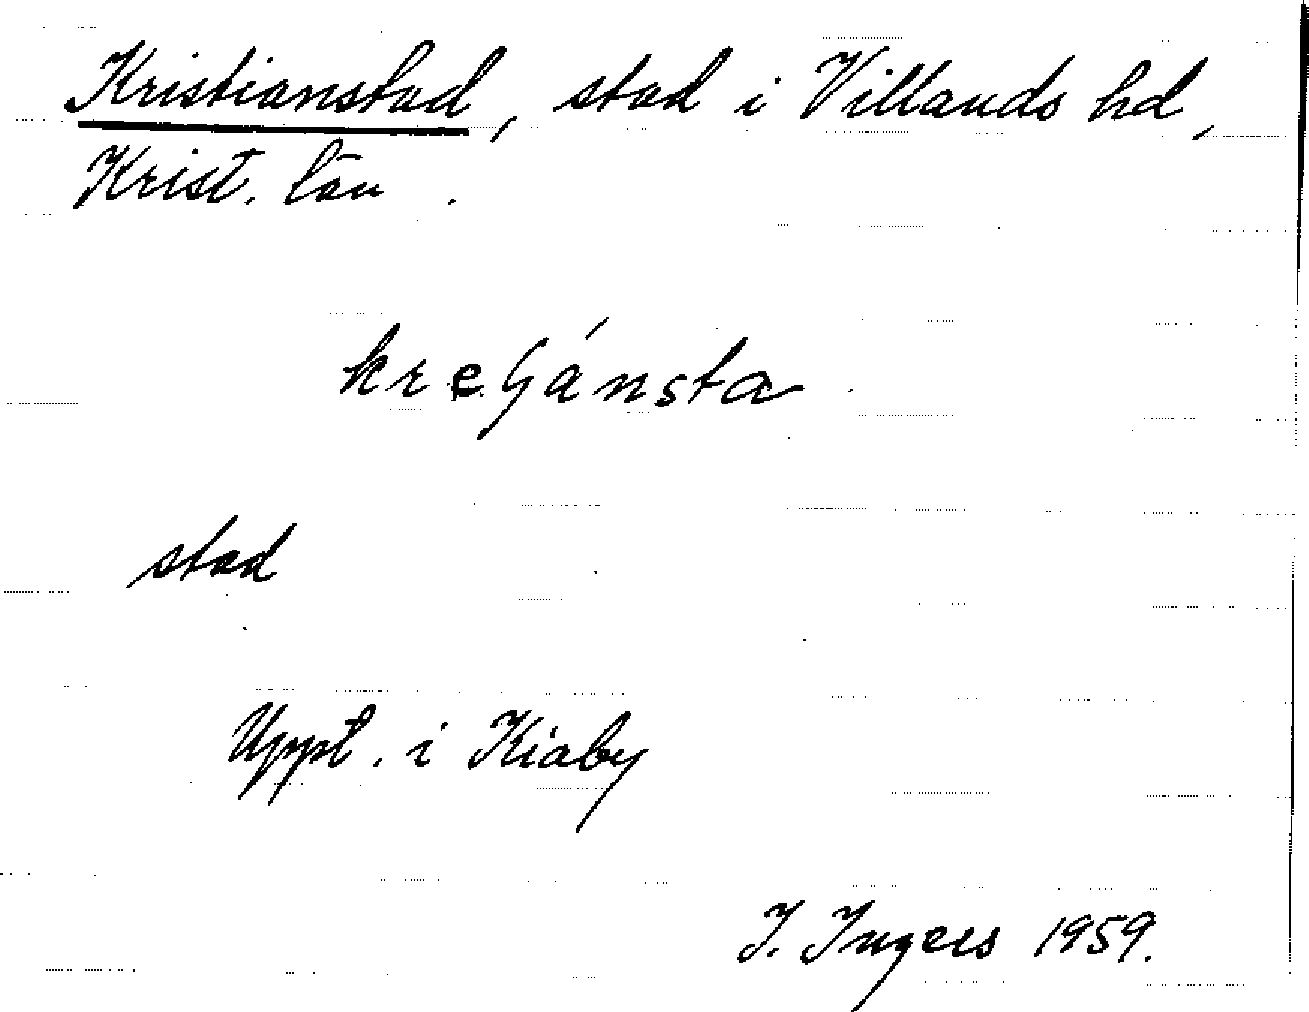 Kristianstad, stad i Villands hd,
Krist. län.
kreʃánsta
stad
Uppt. i Kiaby
I. Ingers 1959.